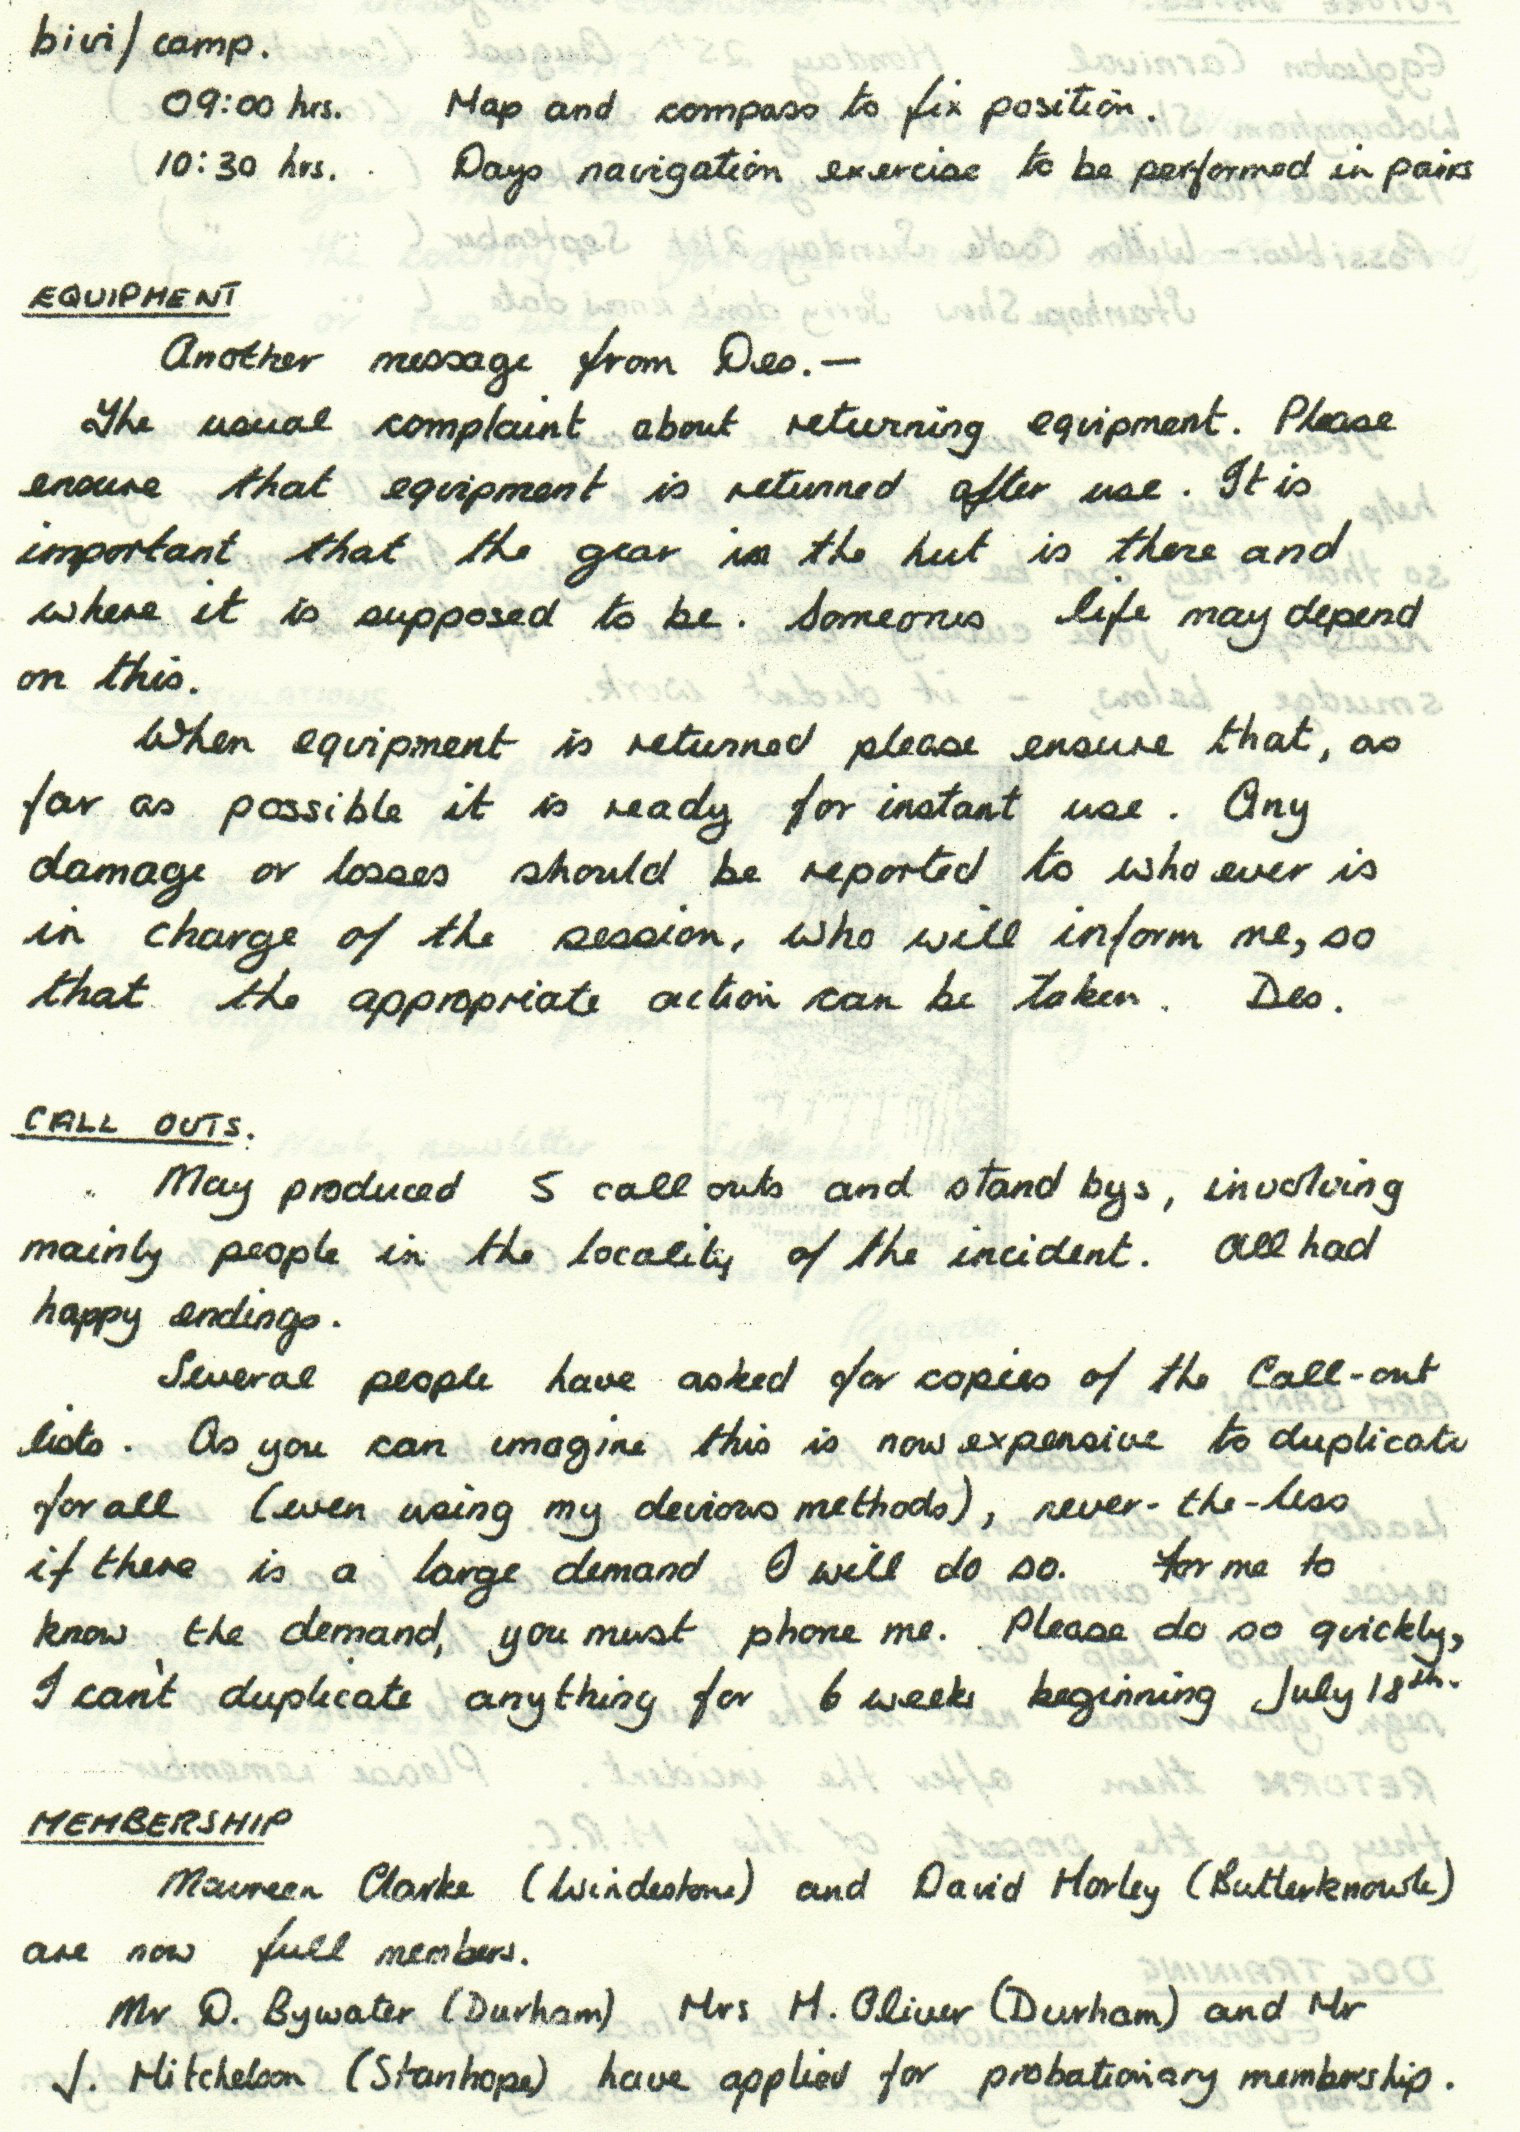 bivi/camp.
09:00 hrs. Map and compass to fix position.
10:30 hrs. Days navigation exercise to be performed in pairs
EQUIPMENT
Another message from Des.—
The usual complaint about returning equipment. Please
ensure that equipment is returned after use. It is
important that the gear in the hut is there and
where it is supposed to be. Someones life may depend
on this.
When equipment is returned please ensure that, as
far as possible it is ready for instant use. Any
damage or losses should be reported to who ever is
in charge of the session, who will inform me, so
that the appropriate action can be taken. Des.
CALL OUTS.
May produced 5 call outs and stand bys, involving
mainly people in the locality of the incident. All had
happy endings.
Several people have asked for copies of the Call-out
lists. As you can imagine this is now expensive to duplicate
for all (even using my devious methods), never-the-less
if there is a large demand I will do so. For me to
know the demand, you must phone me. Please do so quickly,
I can't duplicate anything for 6 weeks beginning July 18th.
MEMBERSHIP
Maureen Clarke (Windlestone) and David Morley (Butterknowle)
are now full members.
Mr D. Bywater (Durham) Mrs M. Oliver (Durham) and Mr
J. Mitchelson (Stanhope) have applied for probationary membership.